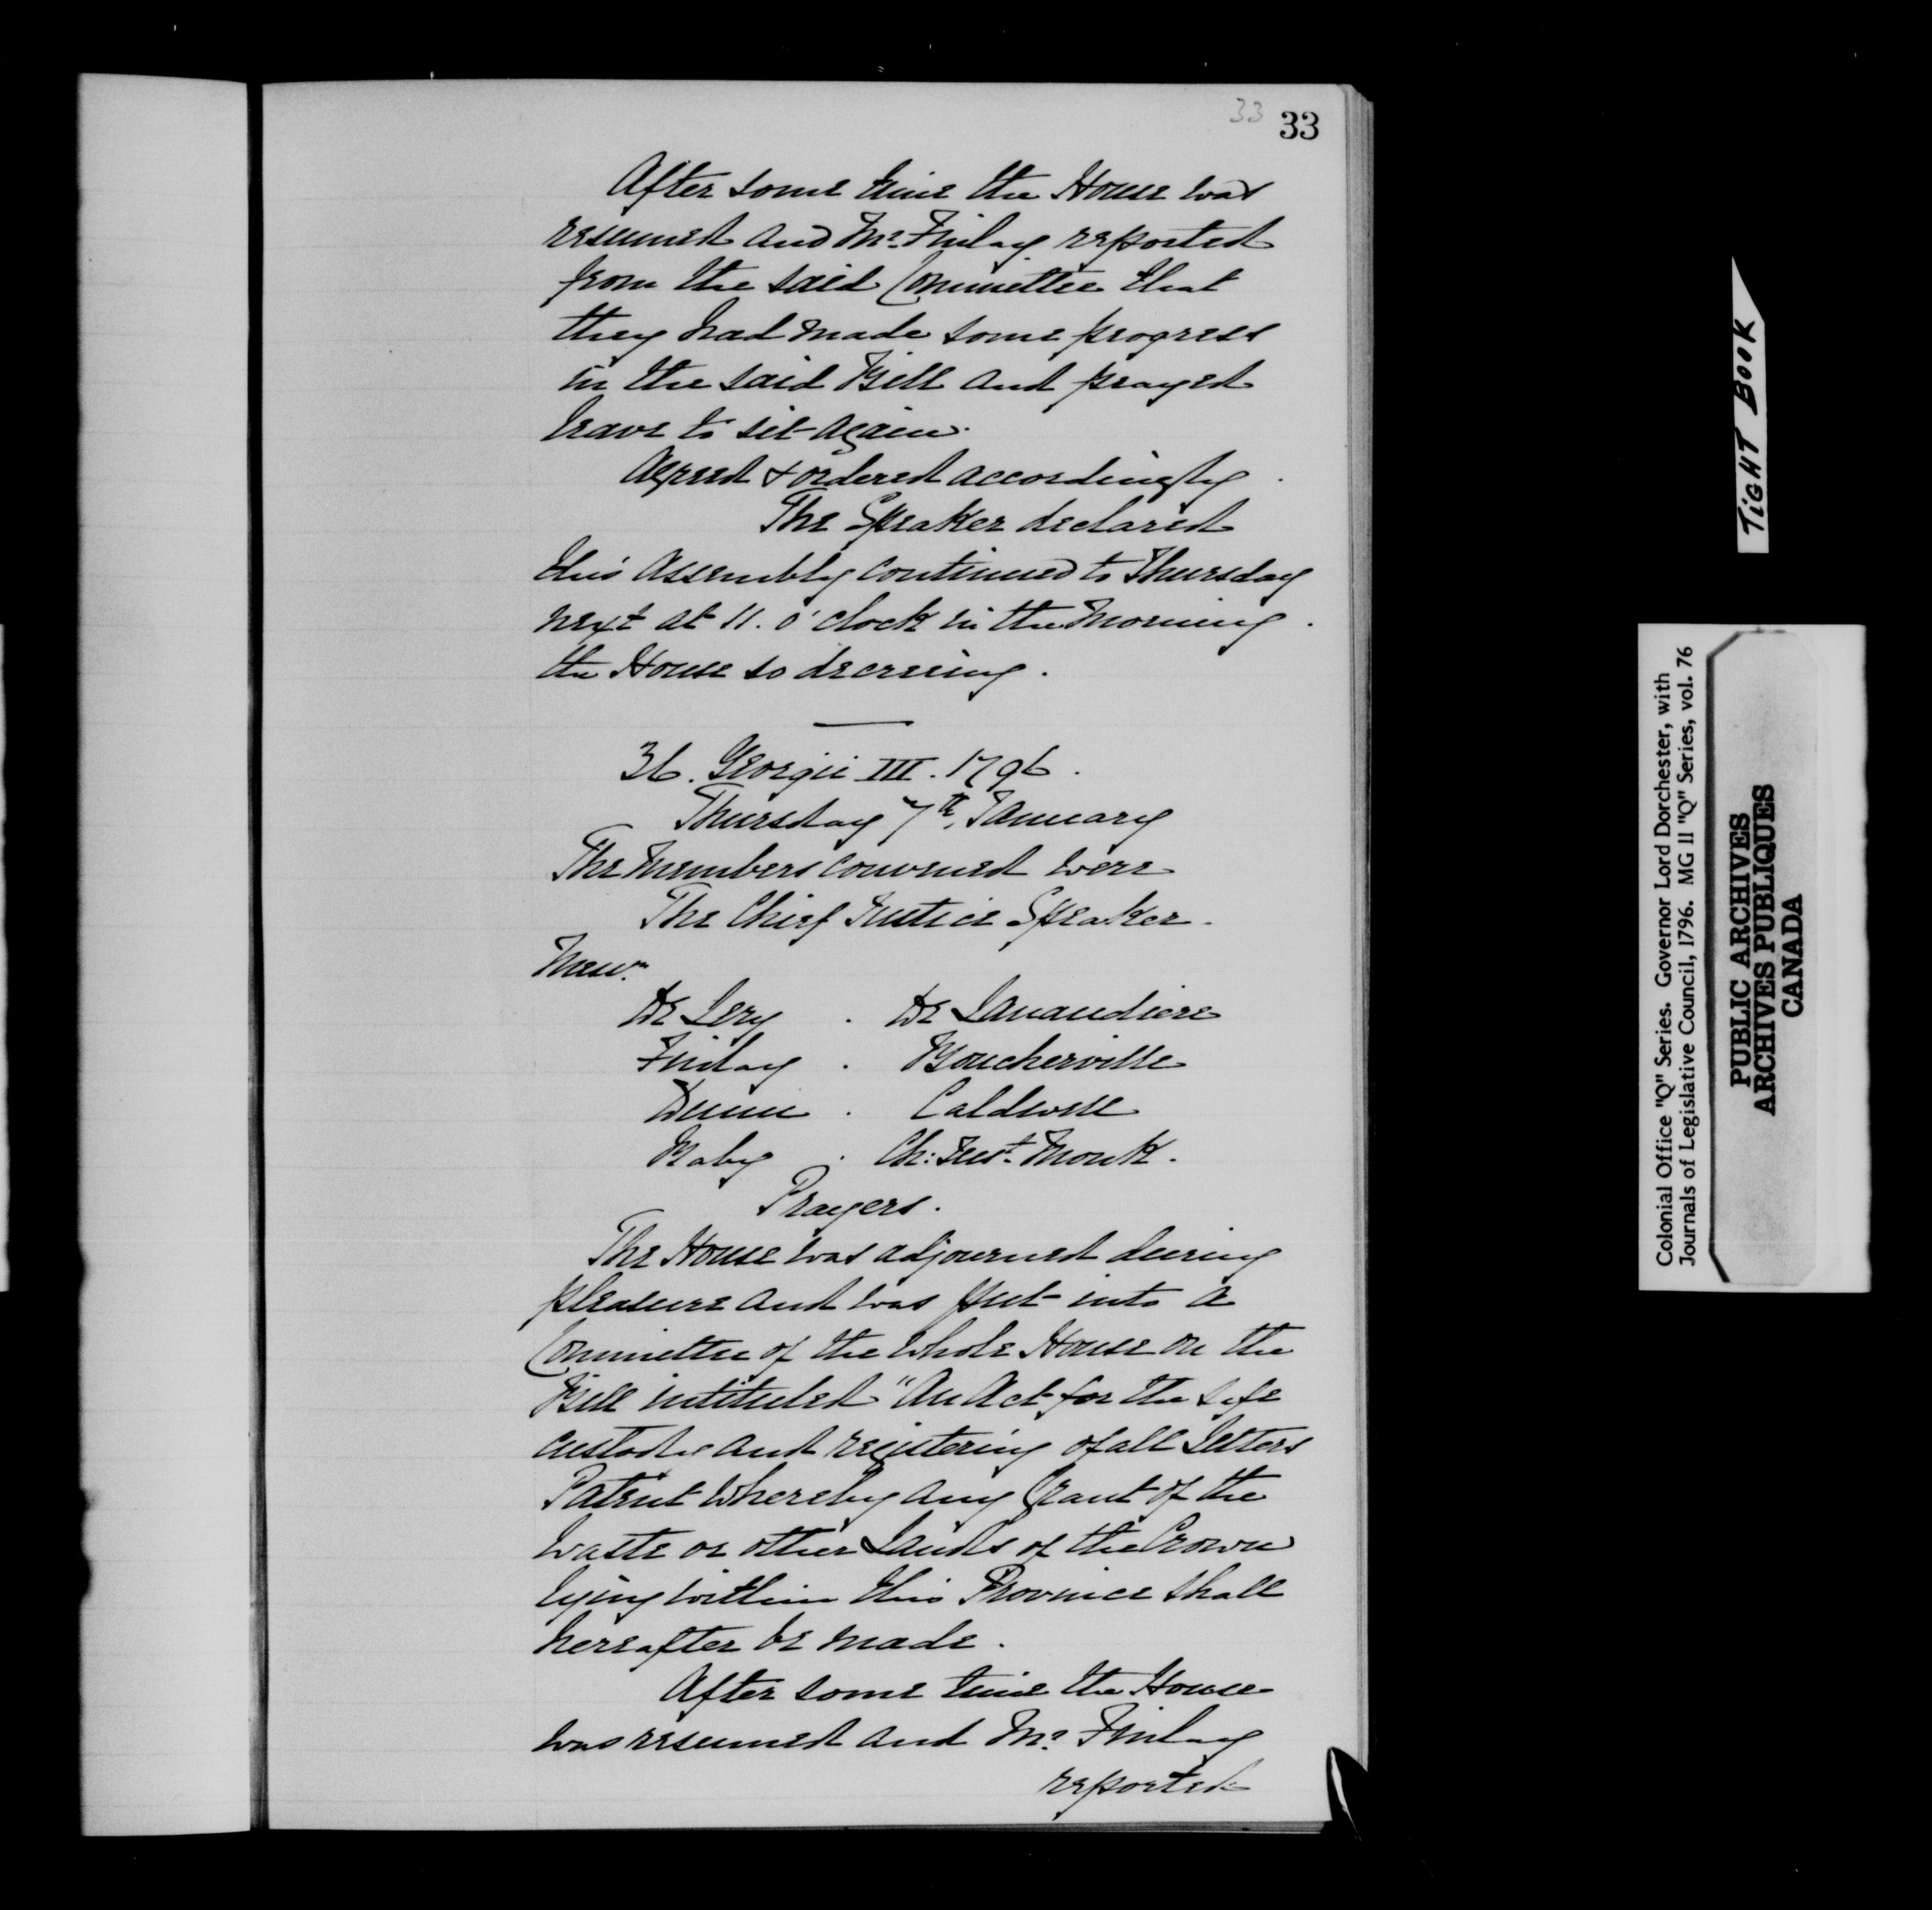 33 33
After some time the House was
resumed and Mr. Finlay reported
from the said Committee that
they had made some progress
in the said Bill and prayed
leave to sit again.
Agreed & ordered accordingly.
The Speaker declared
this Assembly continued to Thursday
next at 11. o'clock in the Morning.
the House so decreeing.
36. Georgii III. 1796.
Thursday 7th, January
The Members convened were
The Chief Justice Speaker.
Messrs.
De Lery . De Lanaudiere
Finlay . Boucherville
Dunn . Caldwell
Baby . Ch: Just. Monk.
Prayers.
The House was adjourned during
pleasure and was put into a
Committee of the whole House on the
Bill intituled "An Act for the safe
custody and registering of all Letters
Patent whereby any Grant of the
waste or other Lands of the Crown
lying within this Province shall
hereafter be made.
After some time the House
was resumed and Mr. Finlay
reported
TIGHT BOOK
Colonial Office "Q" Series. Governor Lord Dorchester, with
Journals of Legislative Council, 1796. MG 11 "Q" Series, vol. 76
PUBLIC ARCHIVES
ARCHIVES PUBLIQUES
CANADA